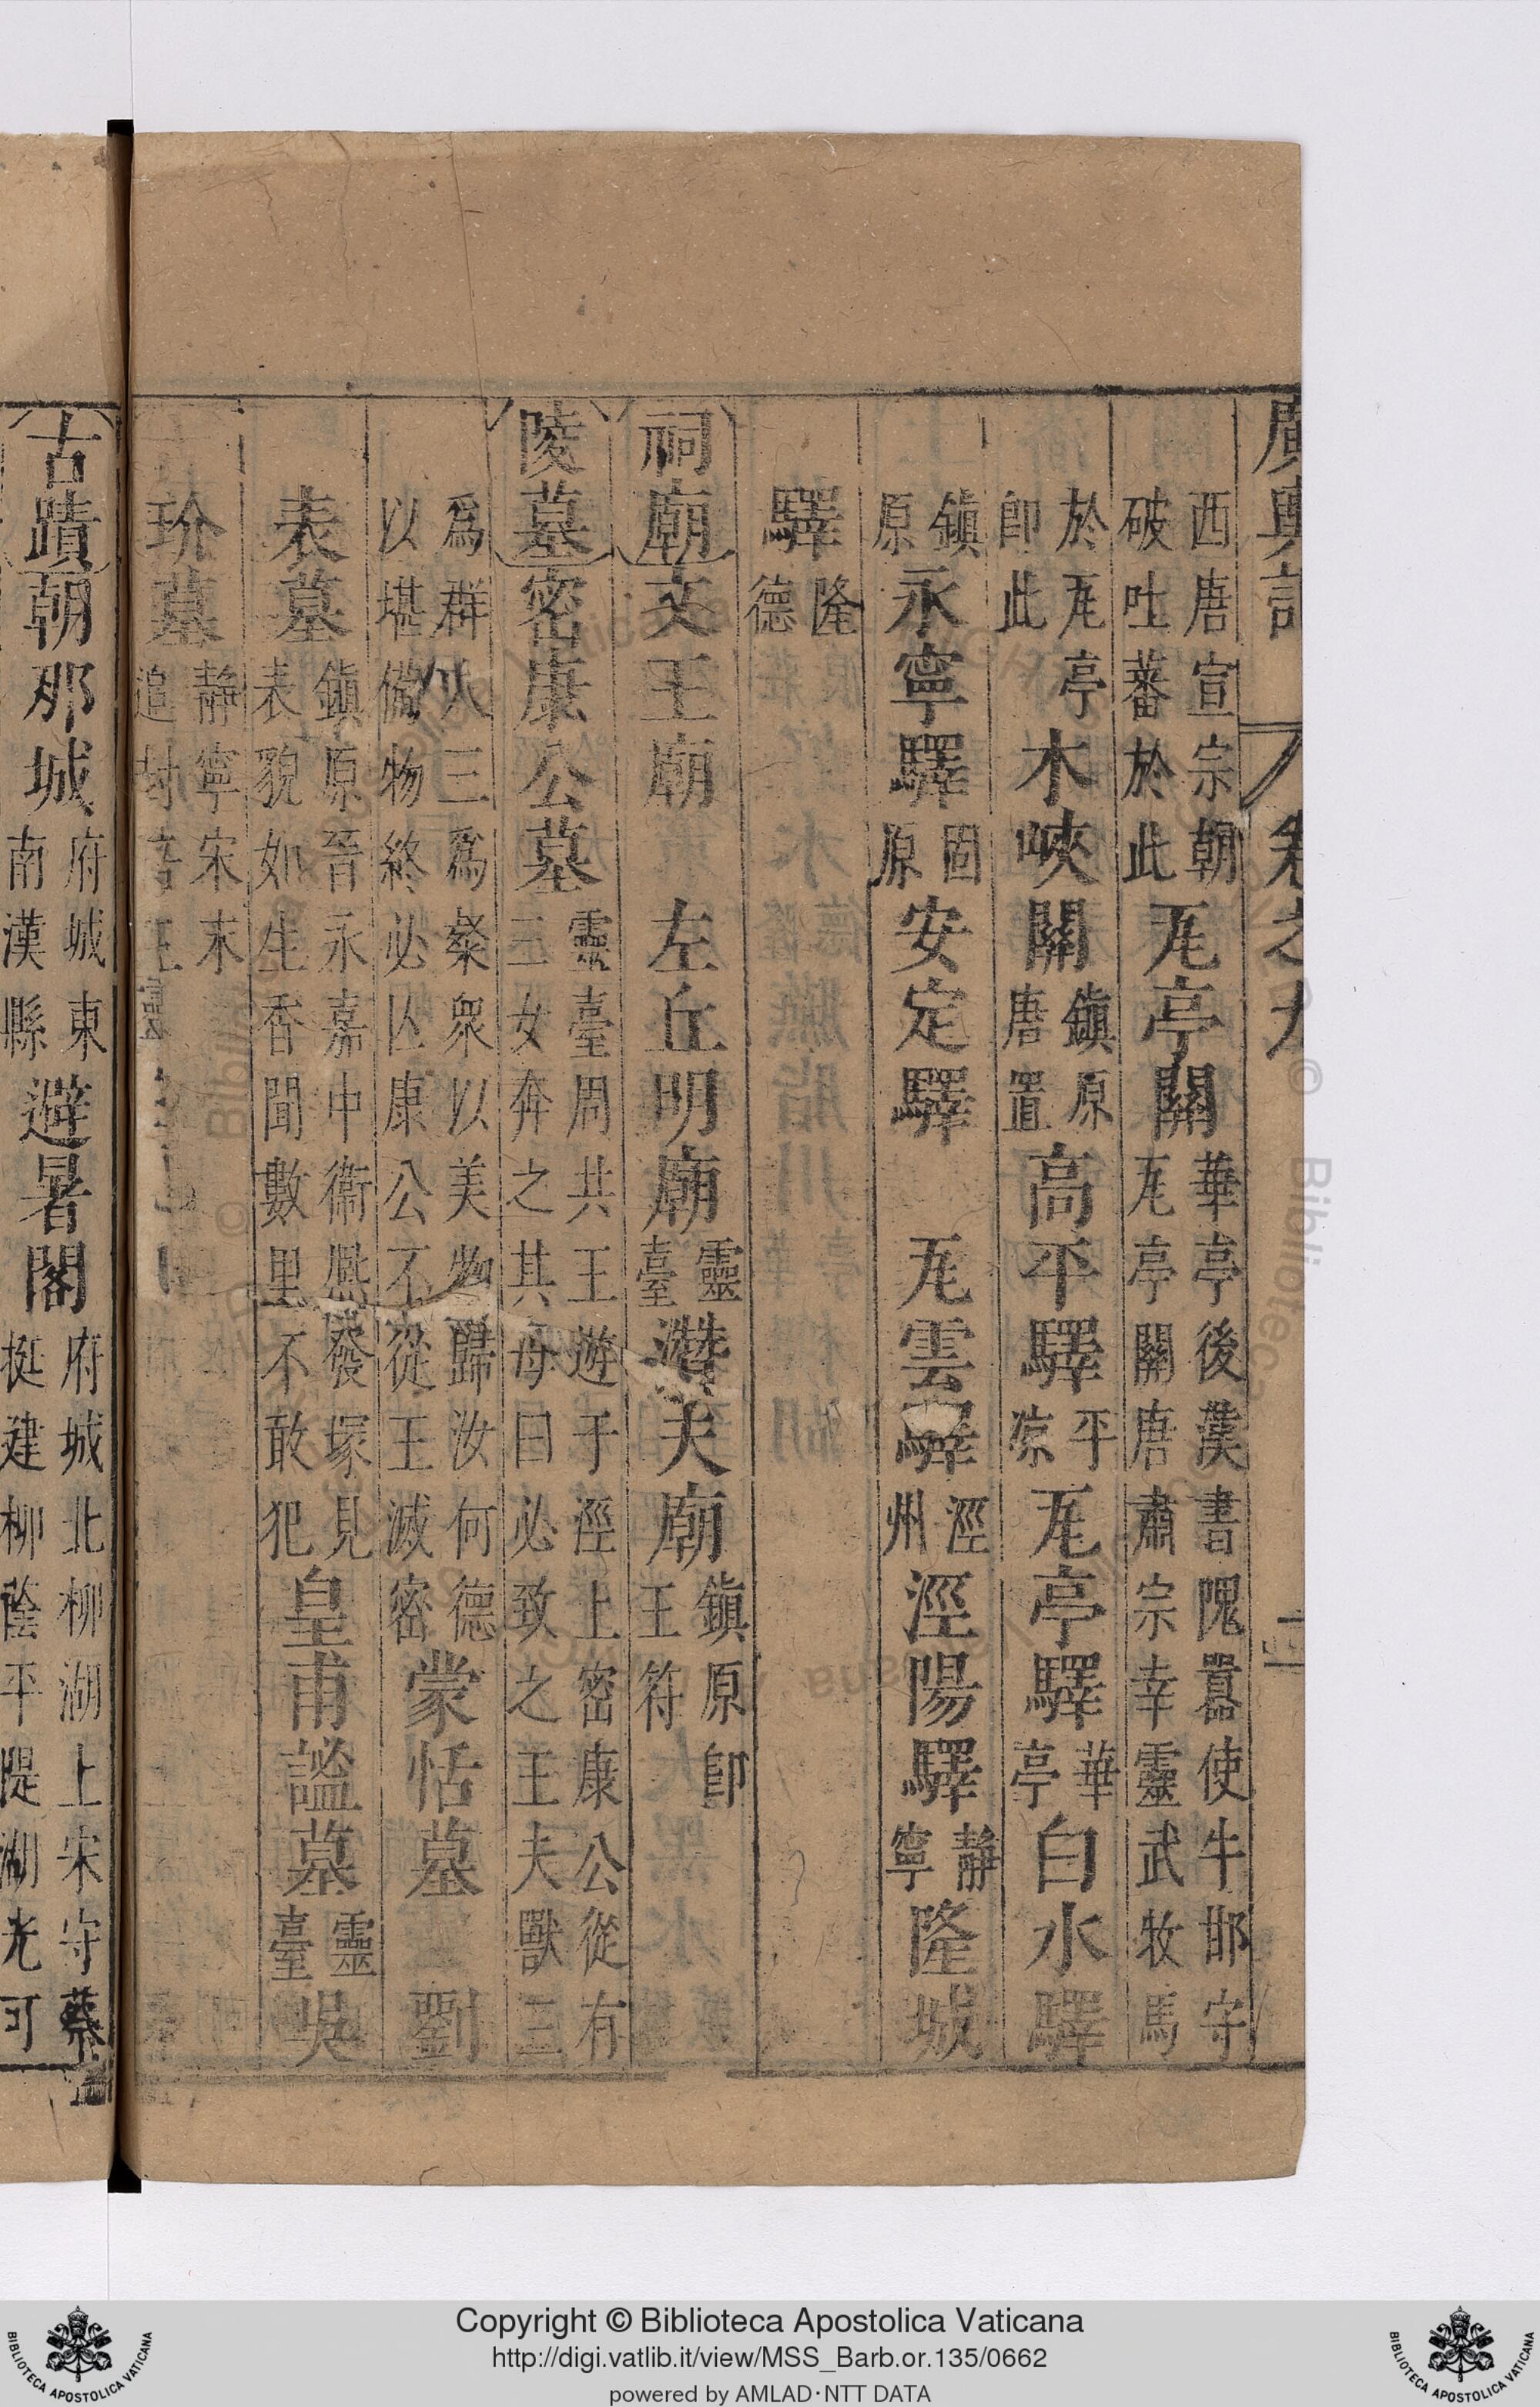 廣輿記 卷之九
西唐宣宗朝
破吐蕃於此
瓦亭關
華亭後漢書隗囂使牛邯守
瓦亭關唐肅宗幸靈武牧馬
於瓦亭
卽此
木峽關
鎮原
唐置
高平驛
平
凉
瓦亭驛
華
亭
白水驛
鎮
原
永寧驛
固
原
安定驛
瓦雲驛
涇
州
涇陽驛
靜
寧
隆城
驛
隆
德
祠廟
文王廟
左丘明廟
靈
臺
潛夫廟
鎮原卽
王符
陵墓
密康公墓
靈臺周共王遊于涇上密康公從有
三女奔之其母曰必致之王夫獸三
爲群人三爲粲衆以美物歸汝何德
以堪備物終必亾康公不從王滅密
蒙恬墓
劉
表墓
鎮原晉永嘉中衞熈發塚見
表貌如生香聞數里不敢犯
皇甫謐墓
靈
臺
吳
玠墓
靜寧宋末
追封
古蹟
朝那城
府城東
南漢縣
避暑閣
府城北柳湖上宋守蔡
挺建柳蔭平隄湖光可
Copyright © Biblioteca Apostolica Vaticana
http://digi.vatlib.it/view/MSS_Barb.or.135/0662
powered by AMLAD·NTT DATA
BIBLIOTECA APOSTOLICA VATICANA
BIBLIOTECA APOSTOLICA VATICANA